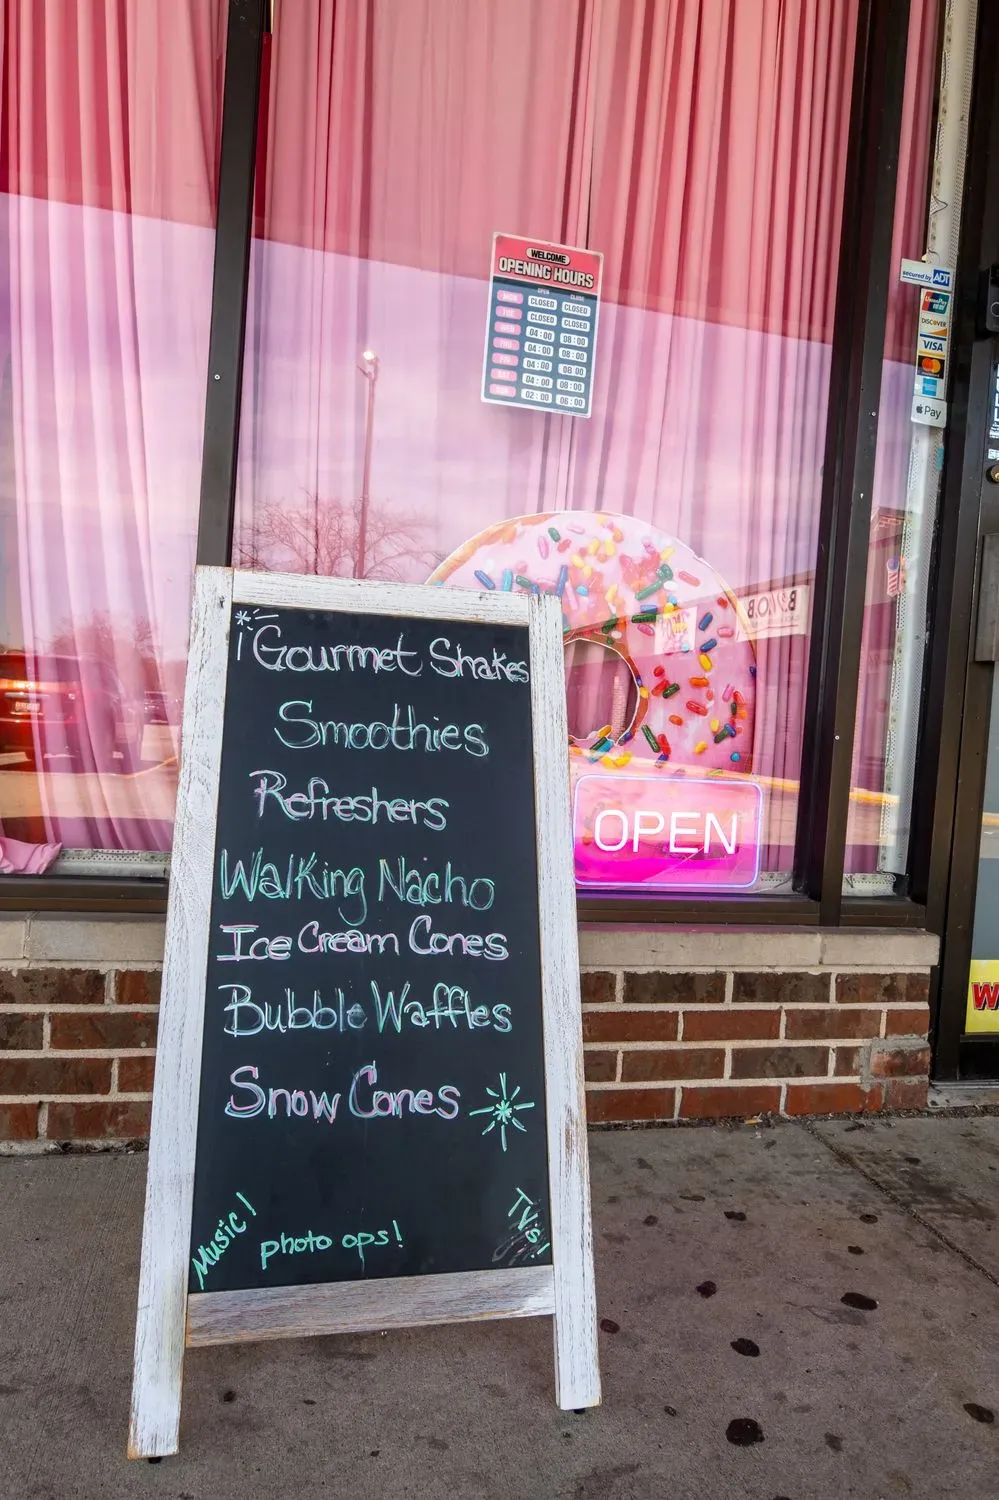 WELCOME
OPENING HOURS
OPEN CLOSE
MON CLOSED CLOSED
TUE CLOSED CLOSED
WED 04:00 08:00
THU 04:00 08:00
FRI 04:00 08:00
SAT 04:00 08:00
SUN 02:00 06:00
secured by ADT
UnionPay
DISCOVER
VISA
Pay
Gourmet Shakes
Smoothies
Refreshers
Walking Nacho
Ice Cream Cones
Bubble Waffles
Snow Cones
Music!
photo ops!
TVs!
OPEN
W